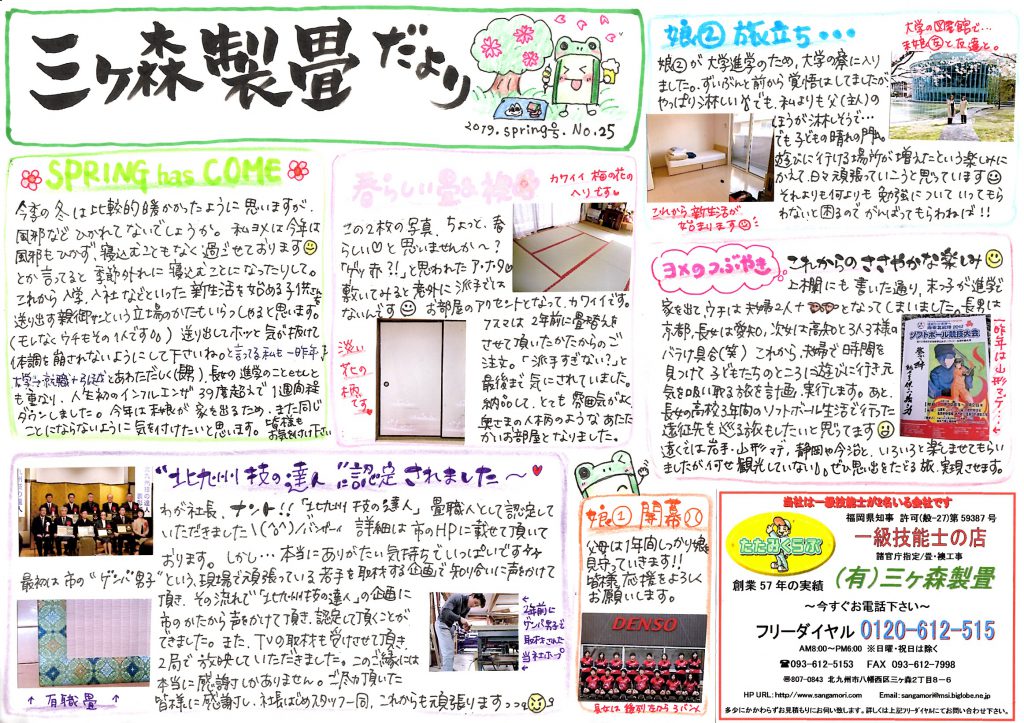 三ヶ森製畳だより
2019.spring号.No.25
SPRING has COME
今季の冬は比較的暖かかったように思いますが、
風邪などひかれてないでしょうか。私ヨメは今年は
風邪もひかず、寝込むこともなく過ごせております
とか言ってると季節外れに寝込むことになったりして。
これから入学、入社などといった新生活を始める子供さんを
送り出す親御サンという立場のかたもいらっしゃると思います。
(もしなくウチもその1人です。) 送り出してホッと気が抜けて
体調を崩されないようにして下さいね。と言ってる私も一昨年、
大学→就職→引越とあわただしく(長男)、長女の進学のことetcとも
も重なり、人生初のインフルエンザ 39度超えで1週間程
ダウンしました。今年は末娘が家を出るため、また同じ
ことにならないように気を付けたいと思います。皆様も
お気を付け下さい
春らしい畳&襖
カワイイ 梅の花の
へりです
この2枚の写真、ちょっと、春
らしい♡と思いませんか〜?
「ゲッ赤?!」と思われたアナタ♡
敷いてみると意外に派手では
ないんです お部屋のアクセントとなって、カワイイです。
淡い
花の
柄です
フスマは2年前に畳替えを
させて頂いたかたからのご
注文。「派手すぎない?」と
最後まで気にされていました。
納品して、とても雰囲気がよく
奥さまの人柄のようなあたた
かいお部屋となりました。
娘②旅立ち・・・
大学の図書館で…
末娘(左)と友達と。
娘②が大学進学のため、大学の寮に入り
ました。ずいぶんと前から覚悟はしてましたが、
やっぱり淋しい。でも、私よりも父(主人)の
ほうが淋しそうで…
でも子どもの晴れの門出。
遊びに行ける場所が増えたという楽しみに
かえて、日々頑張っていこうと思っています
それよりも何よりも勉強についていってもら
わないと困るのでがんばってもらわねば!!
これから新生活が
始まります
ヨメのつぶやき
これからのささやかな楽しみ
上欄にも書いた通り、末っ子が進学で
家を出てウチは夫婦2人 となってしまいました。長男は
京都、長女は愛知、次女は高知と3人3様の
バラケ具合(笑) これから、夫婦で日時間を
見つけて子どもたちのところに遊びに行き元
気を吸い取る旅を計画、実行します。あと、
長女の高校3年間のソフトボール生活で行った
遠征先を巡る旅もしたいと思ってます
遠くは岩手、山形マデ、静岡や今治と、いろいろと楽しませてもらい
ましたが何せ観光していない。ぜひ思い出をたどる旅、実現させます。
一昨年は山形マデ・・
ソフトボール競技大会
"北九州技の達人"に認定されました〜♥
わが社長、ナント!!「北九州技の達人」畳職人として認定して
いただきました\(^O^)/バンザーイ 詳細は市のHPに載せて頂いて
おります。しかし…本当にありがたい気持ちでいっぱいです
最初は市の"ゲンバ男子"という、現場で頑張っている若手を取材する企画で知り合いに声をかけて
頂き、その流れで「北九州技の達人」の企画に
市のかたから声をかけて頂き、認定して頂くことが
できました。また、TVの取材も受けさせて頂き、
2局で放映していただきました。このご縁には
本当に感謝しかありません。ご尽力頂いた
皆様に感謝し、社長はじめスタッフ一同、これからも頑張ります
↑有職畳↑
2年前に
ゲンバ男子で
取材された
当社ホープ
娘①開幕
父母は1年間しっかり娘を
見守っていきます!!
皆様、応援をよろしく
お願いします。
DENSO
長女は後列左から3バンメ
当社は一級技能士が2名いる会社です
福岡県知事 許可(般-27)第59387号
たたみくらぶ
一級技能士の店
諸官庁指定/畳・襖工事
創業57年の実績
(有)三ヶ森製畳
〜今すぐお電話下さい〜
フリーダイヤル 0120-612-515
AM8:00〜PM6:00 ※日曜・祝日は除く
☎093-612-5153 FAX 093-612-7998
〒807-0843 北九州市八幡西区三ヶ森2丁目8−6
HP URL: http://www.sangamori.com Email: sangamori@msi.biglobe.ne.jp
多少にかかわらずお見積もりにお伺い致します。詳しくは上記フリーダイヤルにてお問い合わせ下さい。